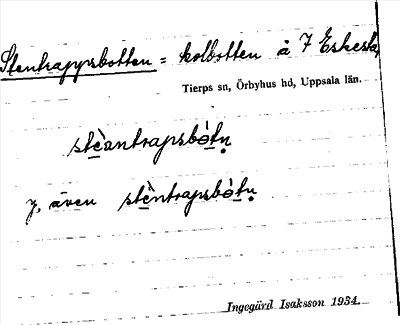 Stentrappsbotten = kolbotten å 7 Eskesta,
Tierps sn, Örbyhus hd, Uppsala län.
stèantrapsbò̀tn̥
j, även stèntrapsbò̀tn̥
Ingegärd Isaksson 1934.